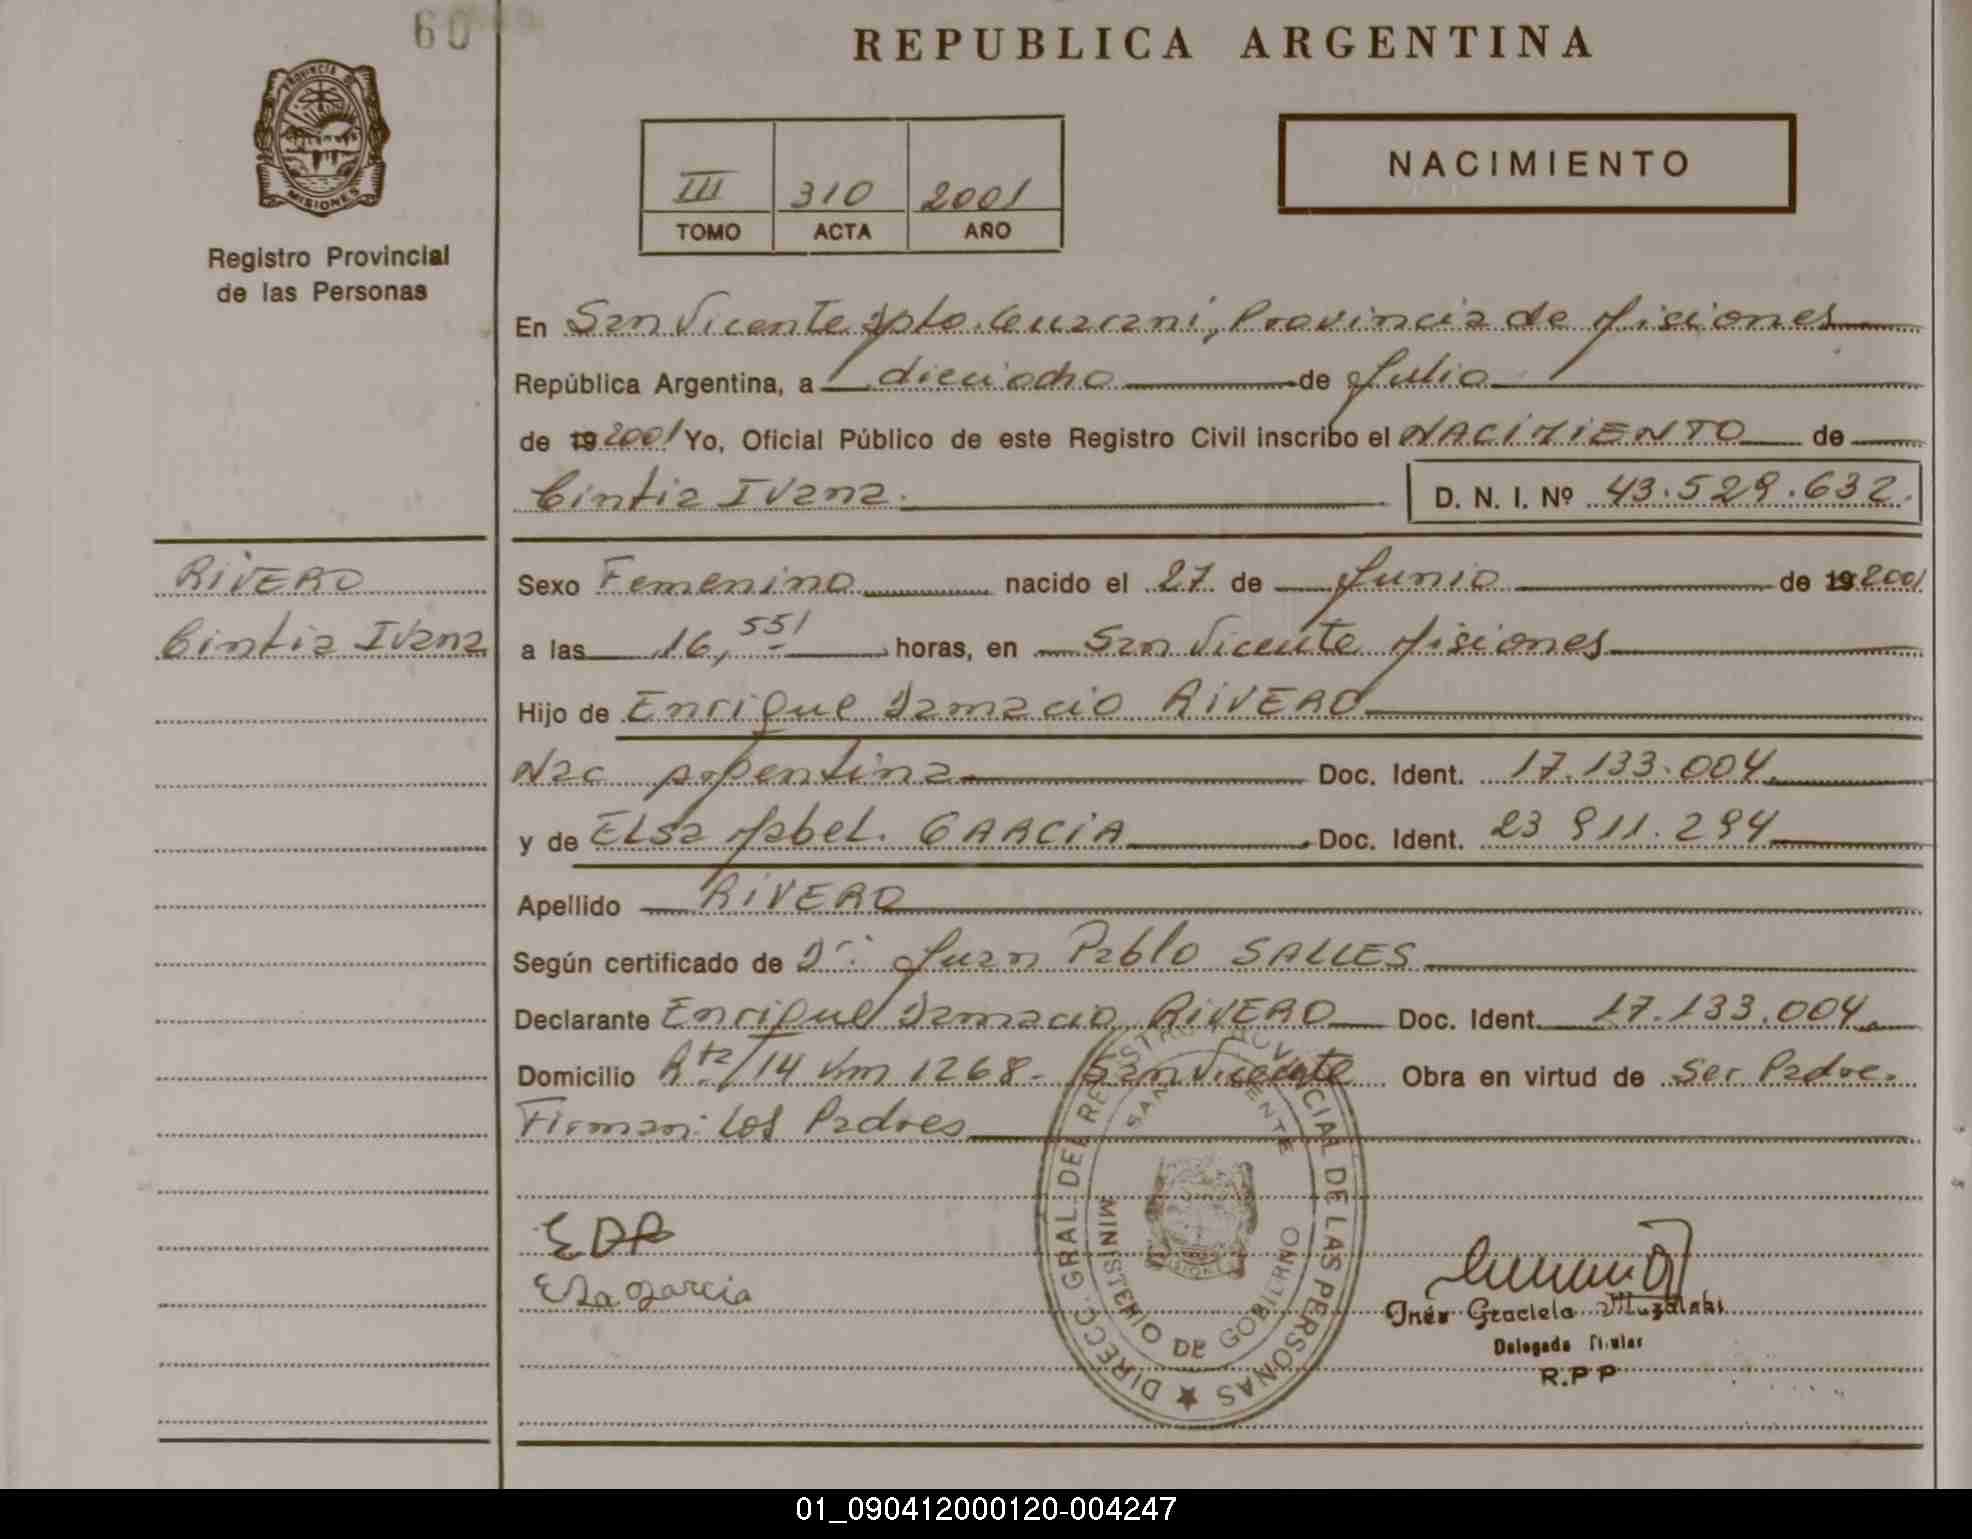 60
REPUBLICA ARGENTINA
PROVINCIA DE
MISIONES
Registro Provincial
de las Personas
III 310 2001
TOMO ACTA AÑO
NACIMIENTO
En San Vicente Dpto. Guarani, Provincia de Misiones
República Argentina, a dieciocho de Julio
de 19 2001 Yo, Oficial Público de este Registro Civil inscribo el NACIMIENTO de
Cintia Ivana. D. N. I. Nº 43.529.632.
RIVERO
Cintia Ivana
Sexo Femenino nacido el 27 de Junio de 19 2001
a las 16,55' horas, en San Vicente Misiones
Hijo de Enrique Damacio RIVERO
Nac Argentina Doc. Ident. 17.133.004.
y de Elsa Mabel. GARCIA Doc. Ident. 23 911.294
Apellido RIVERO
Según certificado de Dr. Juan Pablo SALLES
Declarante Enrique Damacio RIVERO Doc. Ident. 17.133.004.
Domicilio Rta/14 Km 1268- San Vicente Obra en virtud de Ser Padre.
Firman: Los Padres
EDR
Elsa Garcia
DIRECC. GRAL. DEL REGISTRO PROVINCIAL DE LAS PERSONAS
SAN VICENTE
MINISTERIO DE GOBIERNO
MISIONES
Inés Graciela
Delegada Titular
R.P.P
01_090412000120-004247